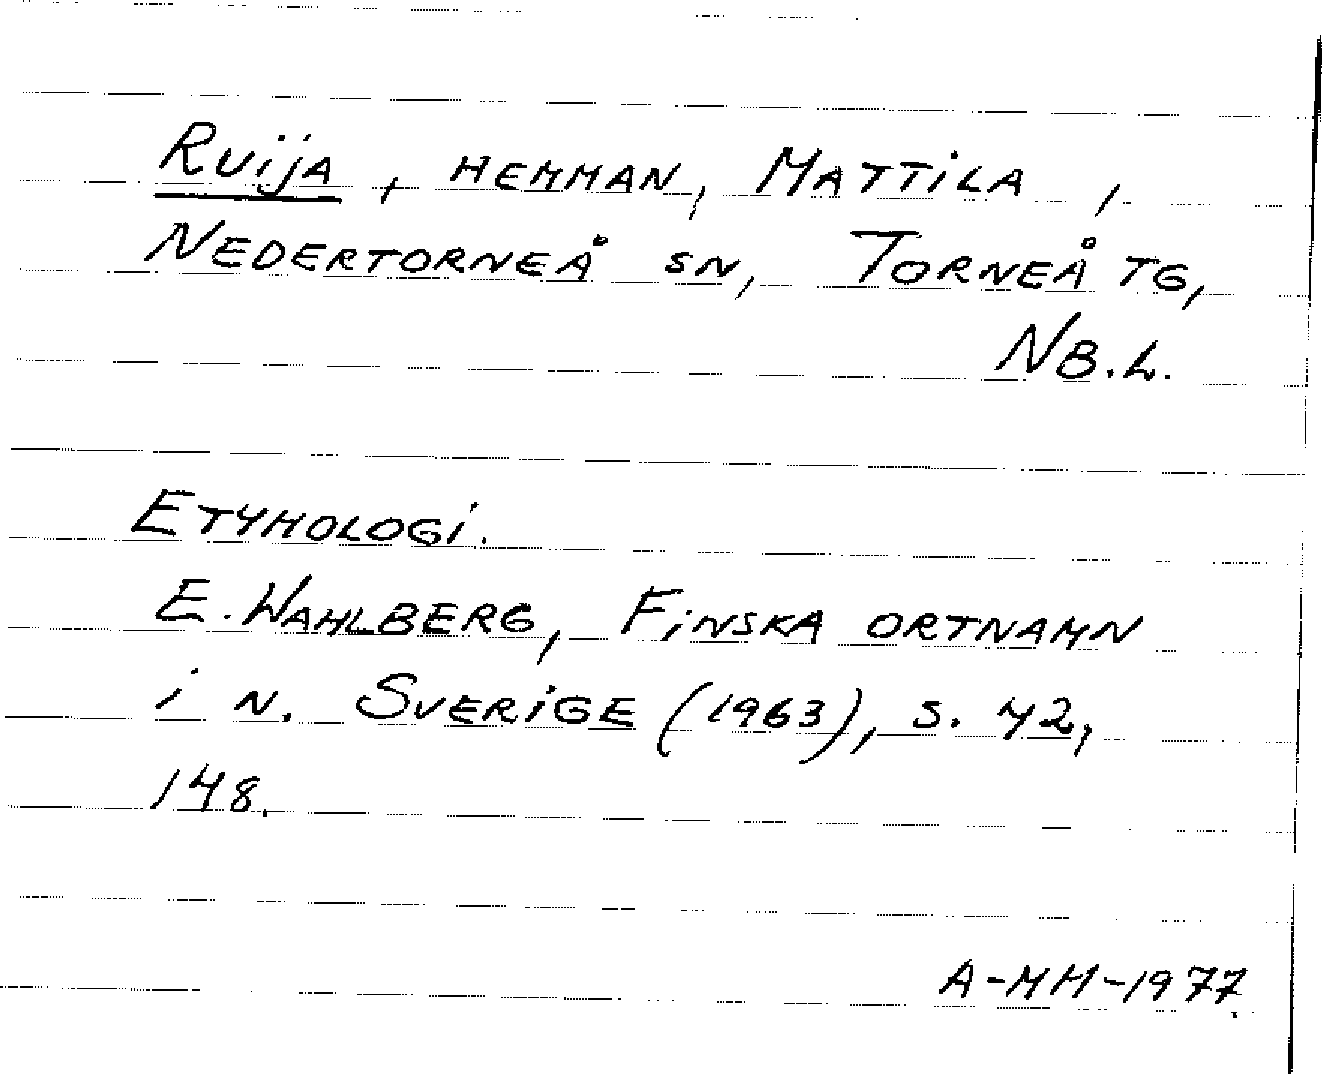 Ruija, HEMMAN, MATTILA,
NEDERTORNEÅ SN, TORNEÅ TG,
NB.L.
ETYMOLOGI.
E. WAHLBERG, FINSKA ORTNAMN
i N. SVERIGE (1963), S. 42,
148.
A-MM-1977.